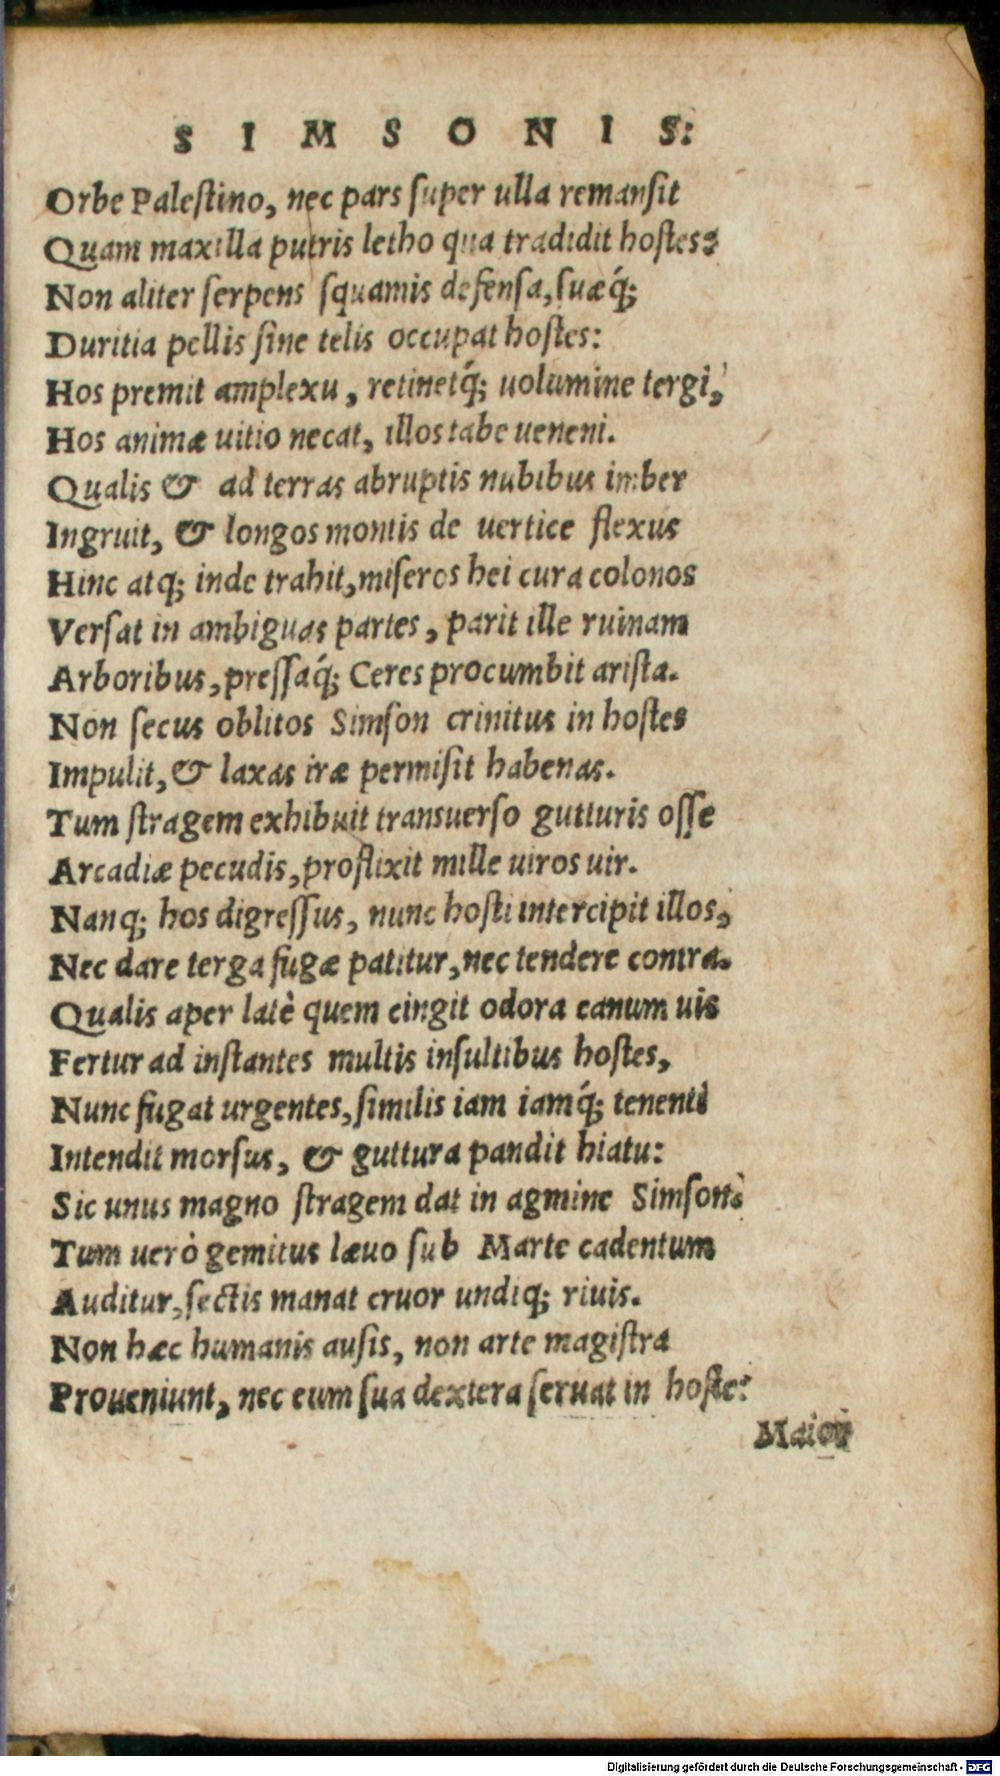 S I M S O N I S.
Orbe Palestino, nec pars super ulla remansit
Quam maxilla putris letho qua tradidit hostes?
Non aliter serpens squamis defensa, suæq́;
Duritia pellis sine telis occupat hostes:
Hos premit amplexu, retinetq́; uolumine tergi,
Hos animæ uitio necat, illos tabe ueneni.
Qualis & ad terras abruptis nubibus imber
Ingruit, & longos montis de uertice flexus
Hinc atq; inde trahit, miseros hei cura colonos
Versat in ambiguas partes, parit ille ruinam
Arboribus, pressaq́; Ceres procumbit arista.
Non secus oblitos Simson crinitus in hostes
Impulit, & laxas iræ permisit habenas.
Tum stragem exhibuit transuerso gutturis osse
Arcadiæ pecudis, proflixit mille uiros uir.
Nanq; hos digressus, nunc hosti intercipit illos,
Nec dare terga fugæ patitur, nec tendere contra.
Qualis aper latè quem cingit odora canum uis
Fertur ad instantes multis insultibus hostes,
Nunc fugat urgentes, similis iam iamq́; tenenti
Intendit morsus, & guttura pandit hiatu:
Sic unus magno stragem dat in agmine Simson.
Tum uerò gemitus læuo sub Marte cadentum
Auditur, sectis manat cruor undiq; riuis.
Non hæc humanis ausis, non arte magistra
Proueniunt, nec eum sua dextera seruat in hoste:
Maior
Digitalisierung gefördert durch die Deutsche Forschungsgemeinschaft - DFG